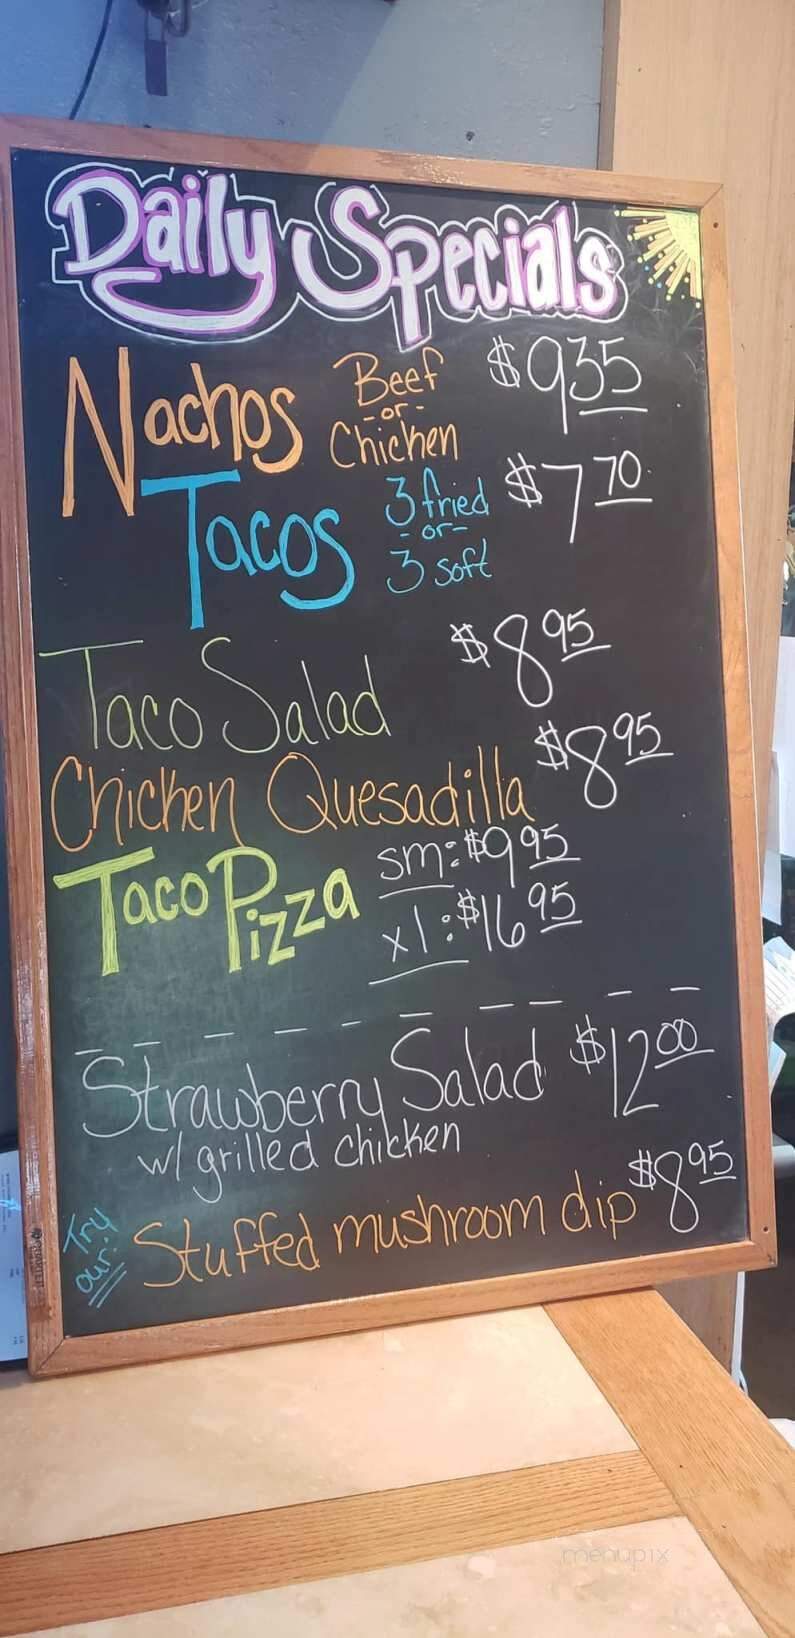 Daily Specials
Nachos Beef -or- Chicken $9.35
Tacos 3 fried -or- 3 soft $7.70
Taco Salad $8.95
Chicken Quesadilla $8.95
Taco Pizza sm: $9.95
xl: $16.95
Strawberry Salad $12.00
w/ grilled chicken
Try our: Stuffed mushroom dip $8.95
menupix